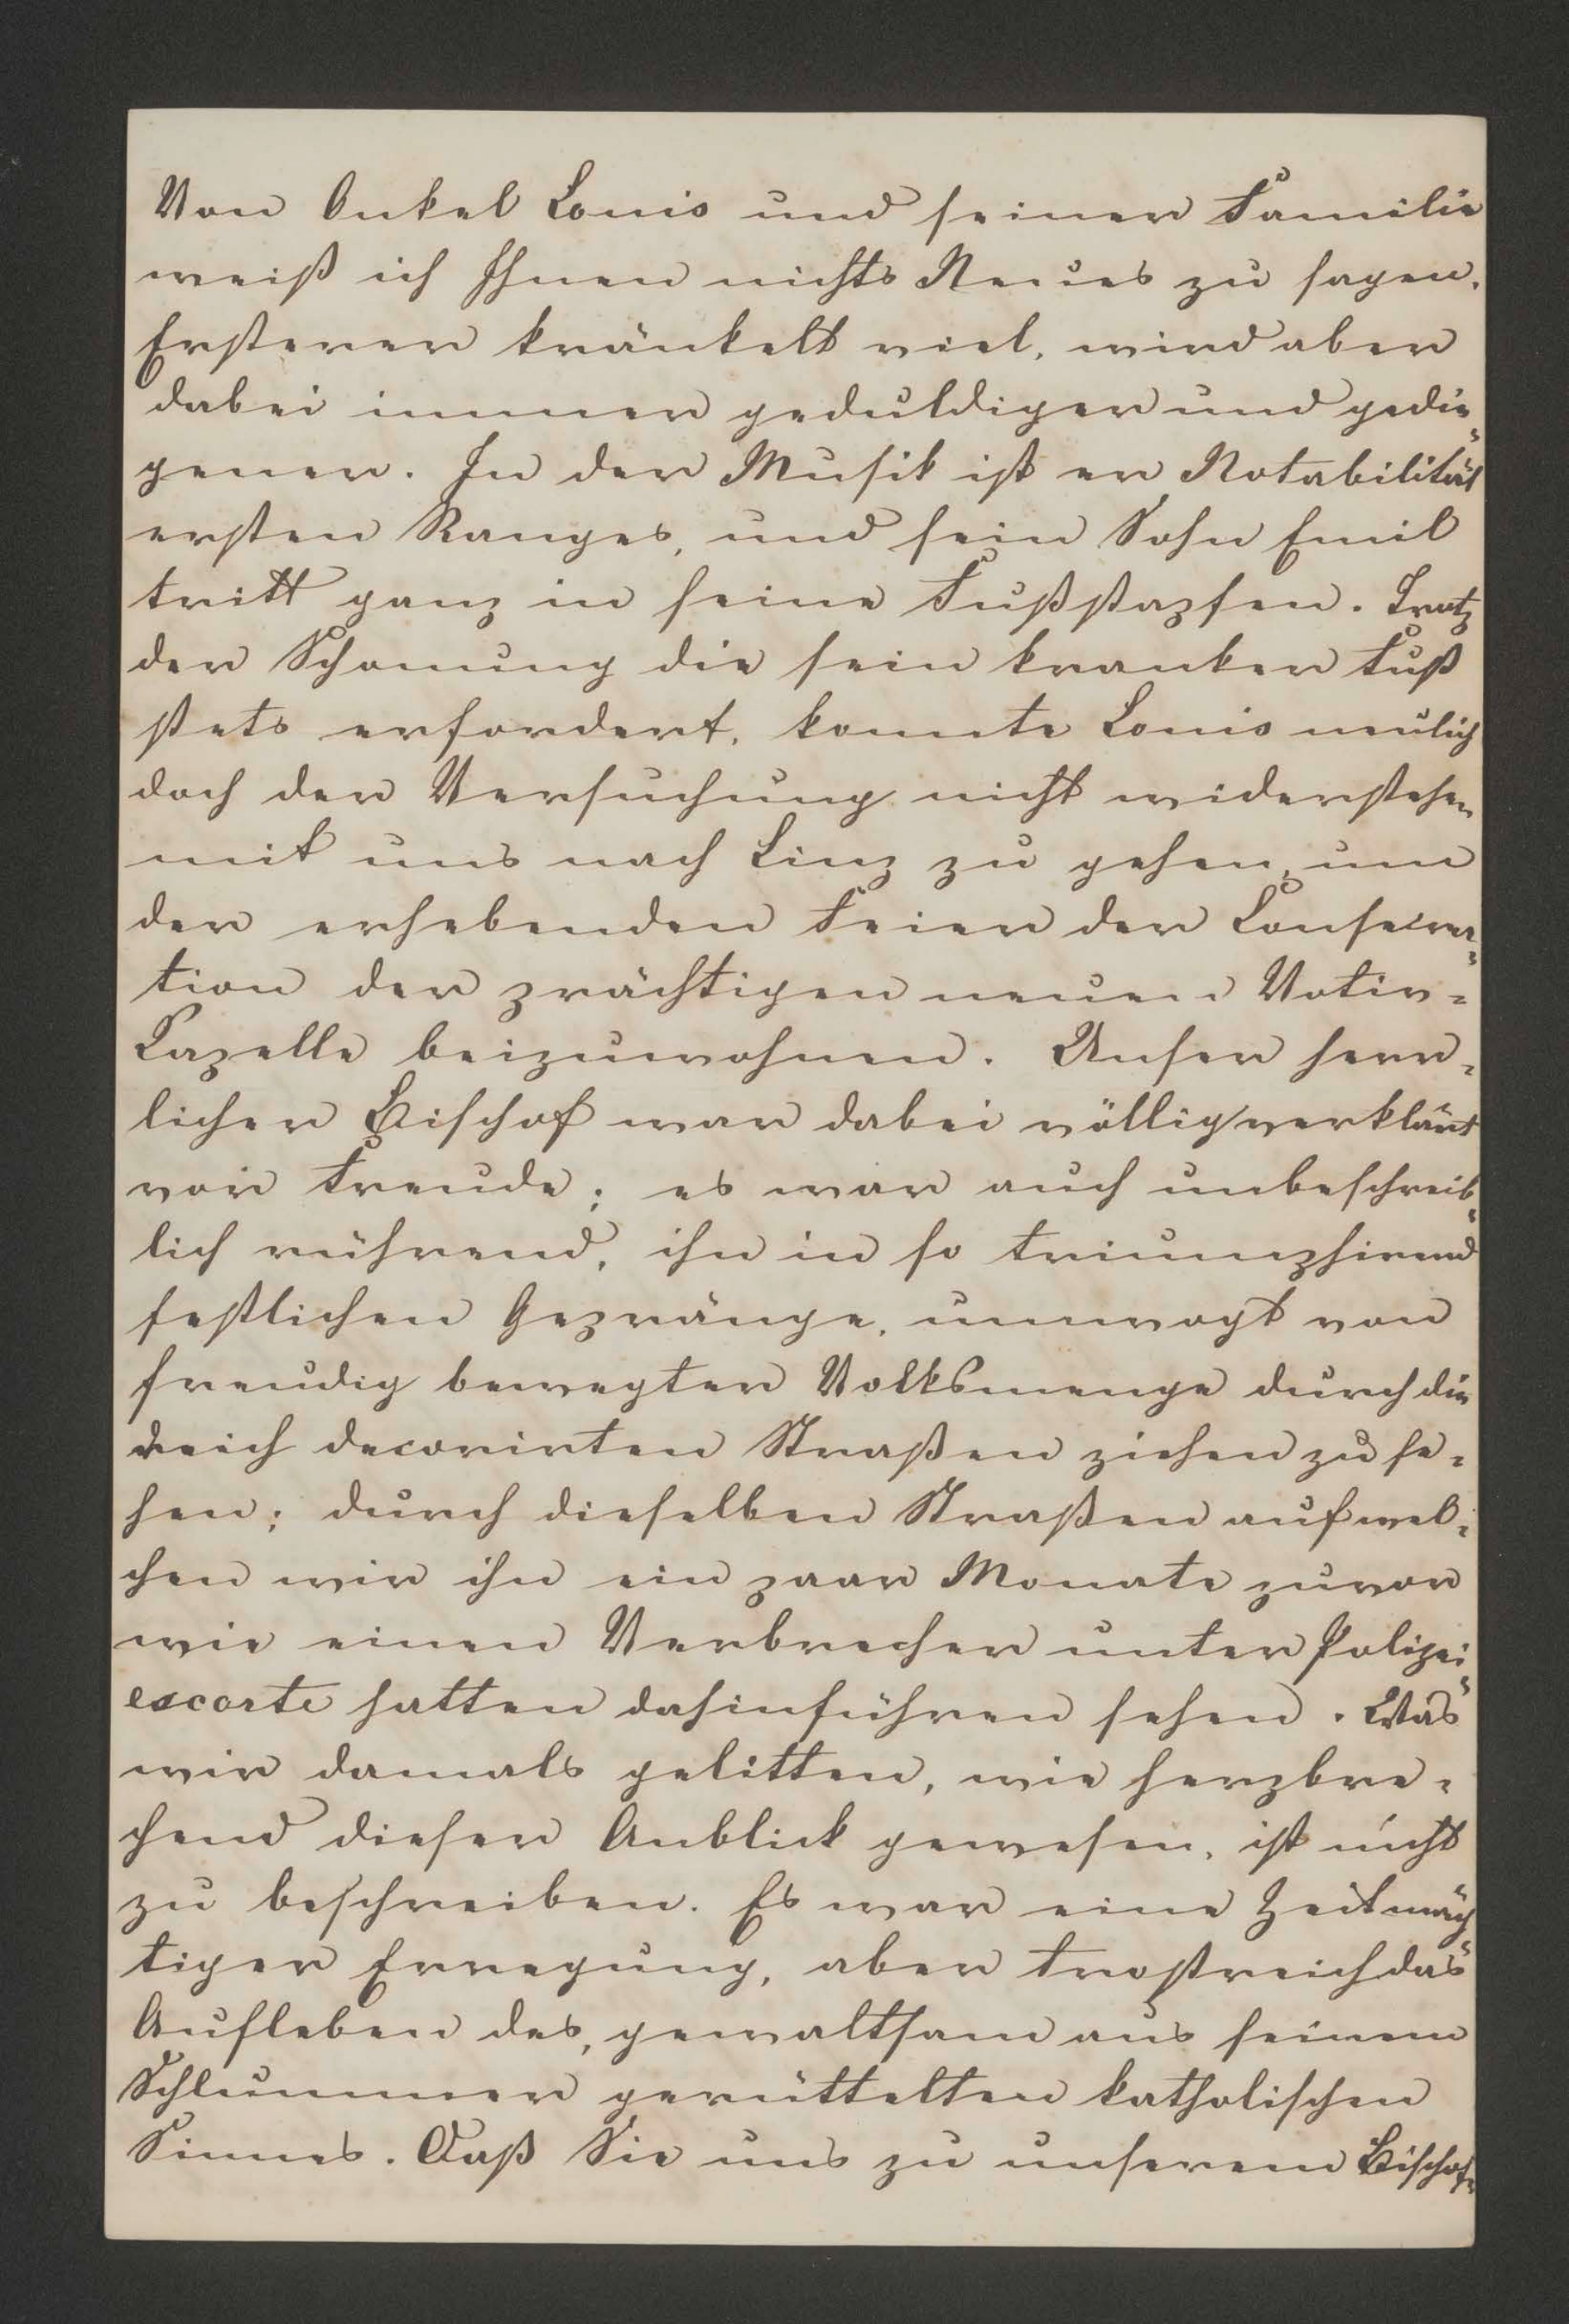 Von Onkel Louis und seiner Familie
weiß ich Ihnen nichts Neues zu sagen.
Ersterer kränkelt viel, wird aber
dabei immer geduldiger und gedie-
gener. In der Musik ist er Notabilität
ersten Ranges, und sein Sohn Emil
tritt ganz in seine Fußstapfen. Trotz
der Schonung die sein kranker Fuß
stets erfordert, konnte Louis neulich
doch der Versuchung nicht widerstehen
mit uns nach Linz zu gehen, um
der erhebenden Feier der Consecra=
tion der prächtigen neuen Votiv=
Capelle beizuwohnen. Unser herr=
licher Bischof war dabei völlig verklärt
vor Freude; es war auch unbeschreib=
lich rührend, ihn in so triumphirend
festlichen Gepränge, umwogt von
freudig bewegter Volksmenge durch die
reich decorirten Straßen ziehen zu se=
hen; durch dieselben Straßen auf wel=
chen wir ihn ein paar Monate zuvor
wie einen Verbrecher unter Polizei=
escorte hatten dahinführen sehen. Was
wir damals gelitten, wie herzbre=
chend dieser Anblick gewesen, ist nicht
zu beschreiben. Es war eine Zeit mäch=
tiger Erregung, aber trostreich das
Aufleben des, gewaltsam aus seinem
Schlummer gerüttelten katholischen
Sinnes. Daß Sie uns zu unserem Bischof=